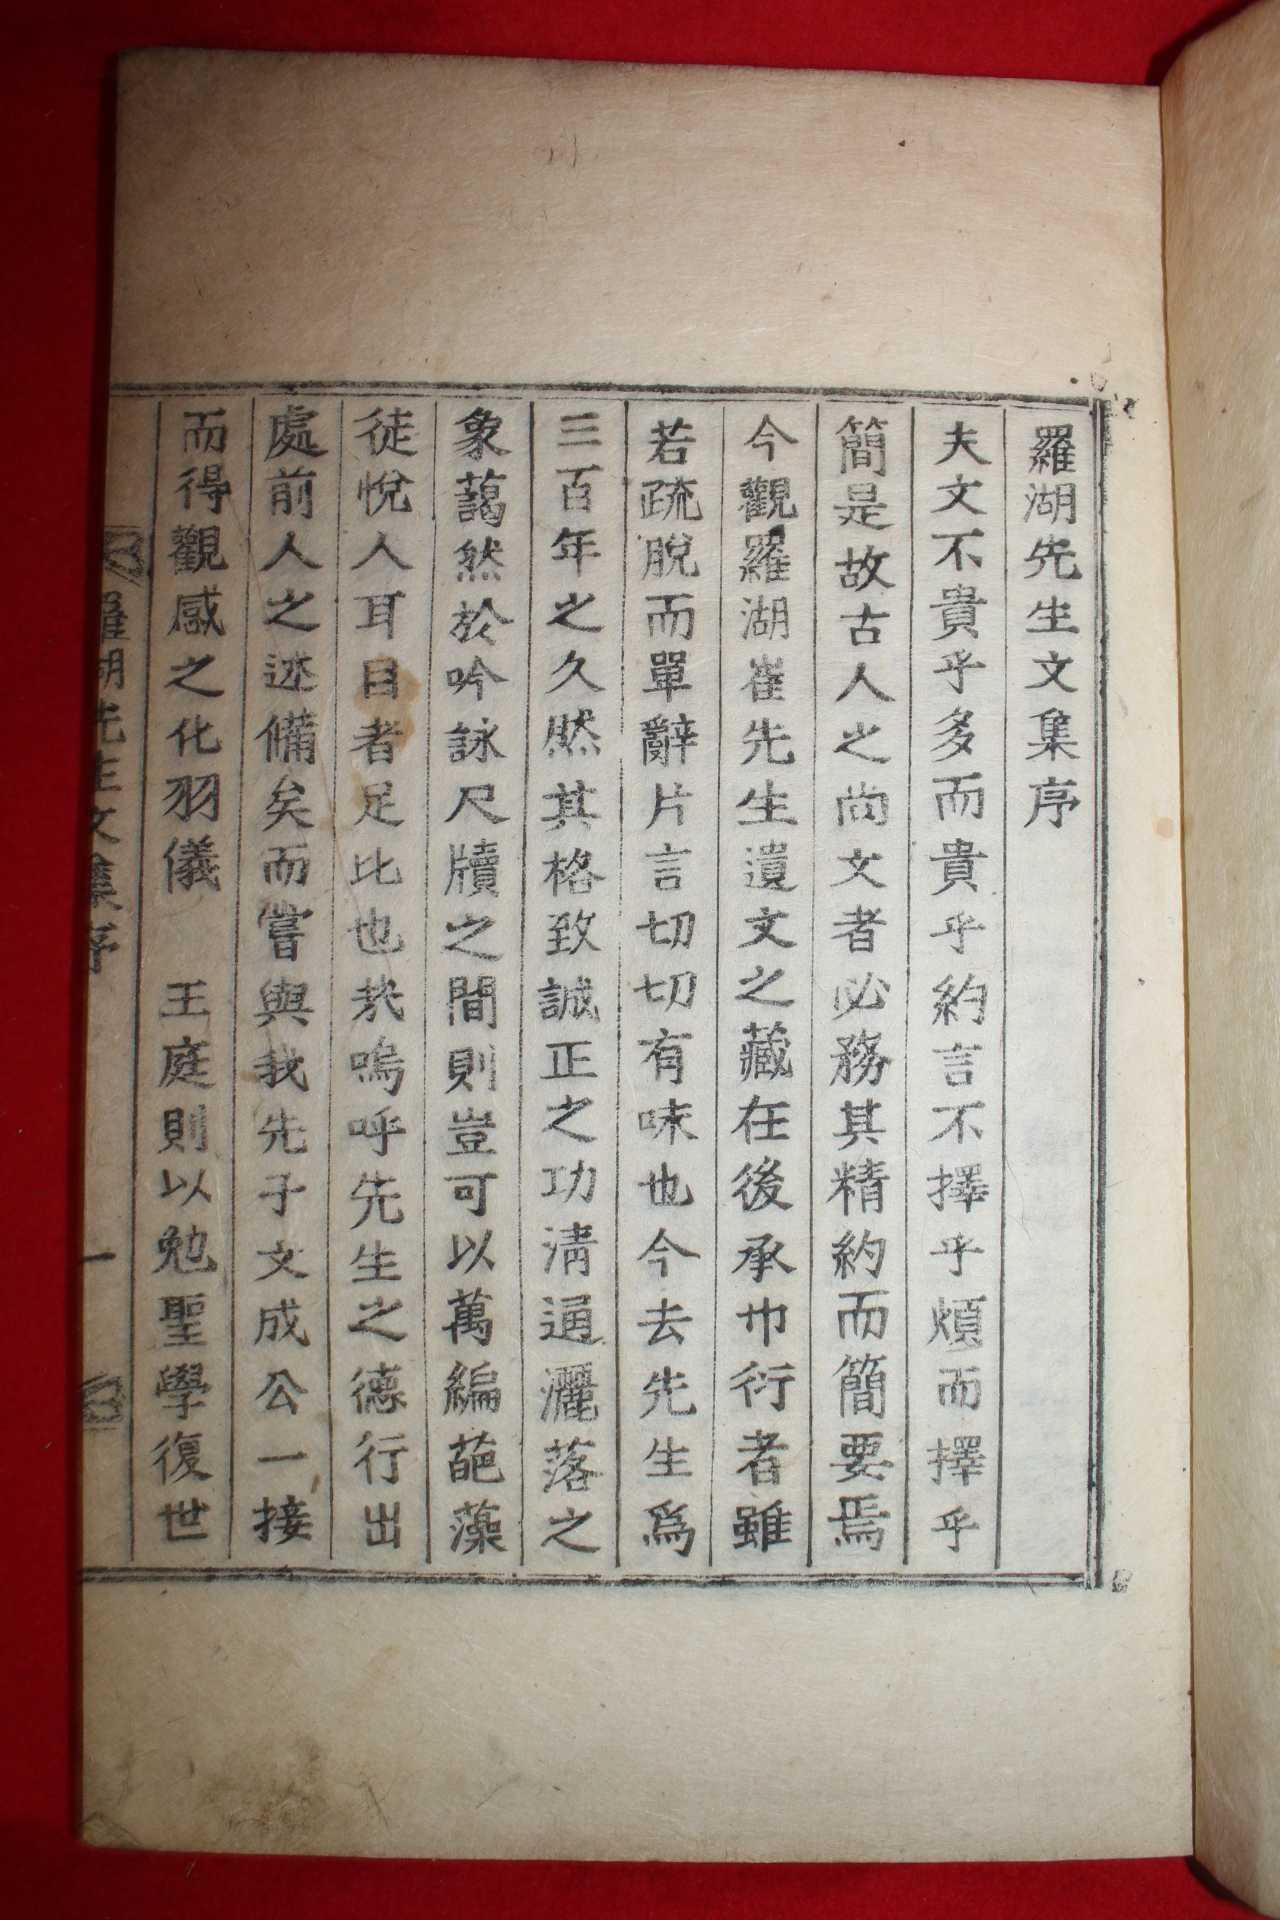 羅湖先生文集序
夫文不貴乎多而貴乎約言不擇乎煩而擇乎
簡是故古人之尚文者必務其精約而簡要焉
今觀羅湖崔先生遺文之藏在後承巾衍者雖
若疏脫而單辭片言切切有味也今去先生爲
三百年之久然其格致誠正之功淸通灑落之
象藹然於吟詠尺牘之間則豈可以萬編葩藻
徒悅人耳目者足比也哉嗚呼先生之德行出
處前人之述備矣而嘗與我先子文成公一接
而得觀感之化羽儀 王庭則以勉聖學復世
羅湖先生文集序 一